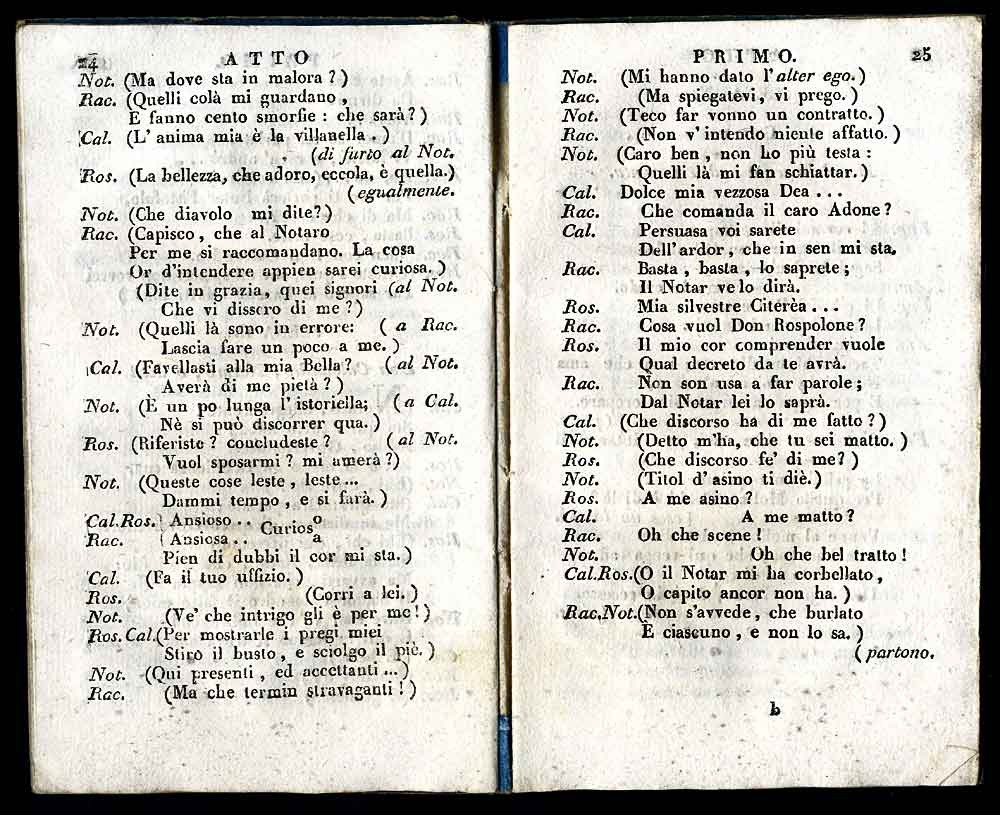 24 ATTO
Not. (Ma dove sta in malora ?)
Rac. (Quelli colà mi guardano ,
E fanno cento smorfie : che sarà ? )
Cal. (L' anima mia è la villanella . )
(di furto al Not.
Ros. (La bellezza, che adoro, eccola, è quella.)
(egualmente.
Not. (Che diavolo mi dite?)
Rac. (Capisco , che al Notaro
Per me si raccomandano. La cosa
Or d'intendere appien sarei curiosa. )
(Dite in grazia, quei signori (al Not.
Che vi dissero di me ? )
Not. (Quelli là sono in errore: ( a Rac.
Lascia fare un poco a me. )
Cal. (Favellasti alla mia Bella ? ( al Not.
Averà di me pietà ? )
Not. (È un po lunga l' istoriella; ( a Cal.
Nè si può discorrer qua. )
Ros. (Riferiste ? concludeste ? ( al Not.
Vuol sposarmi ? mi amerà ?)
Not. (Queste cose leste , leste ...
Dammi tempo , e si farà. )
Cal.Ros.} Ansioso . . Curioso
Rac. { Ansiosa . . a
Pien di dubbi il cor mi sta.)
Cal. (Fa il tuo uffizio. )
Ros. (Corri a lei. )
Not. (Ve' che intrigo gli è per me!)
Ros.Cal.(Per mostrarle i pregi miei
Stiro il busto, e sciolgo il piè. )
Not. (Qui presenti , ed accettanti ...)
Rac. (Ma che termin stravaganti ! )
PRIMO. 25
Not. (Mi hanno dato l'alter ego.)
Rac. (Ma spiegatevi, vi prego. )
Not. (Teco far vonno un contratto. )
Rac. (Non v' intendo niente affatto. )
Not. (Caro ben , non ho più testa :
Quelli là mi fan schiattar. )
Cal. Dolce mia vezzosa Dea . . .
Rac. Che comanda il caro Adone ?
Cal. Persuasa voi sarete
Dell' ardor , che in sen mi sta.
Rac. Basta , basta , lo saprete ;
Il Notar ve lo dirà.
Ros. Mia silvestre Citerèa . . .
Rac. Cosa vuol Don Rospolone ?
Ros. Il mio cor comprender vuole
Qual decreto da te avrà.
Rac. Non son usa a far parole ;
Dal Notar lei lo saprà.
Cal. (Che discorso ha di me fatto ? )
Not. (Detto m'ha, che tu sei matto. )
Ros. (Che discorso fe' di me? )
Not. (Titol d' asino ti diè. )
Ros. A me asino ?
Cal. A me matto ?
Rac. Oh che scene !
Not. Oh che bel tratto !
Cal.Ros.(O il Notar mi ha corbellato ,
O capito ancor non ha. )
Rac.Not.(Non s'avvede , che burlato
È ciascuno , e non lo sa. )
( partono.
b